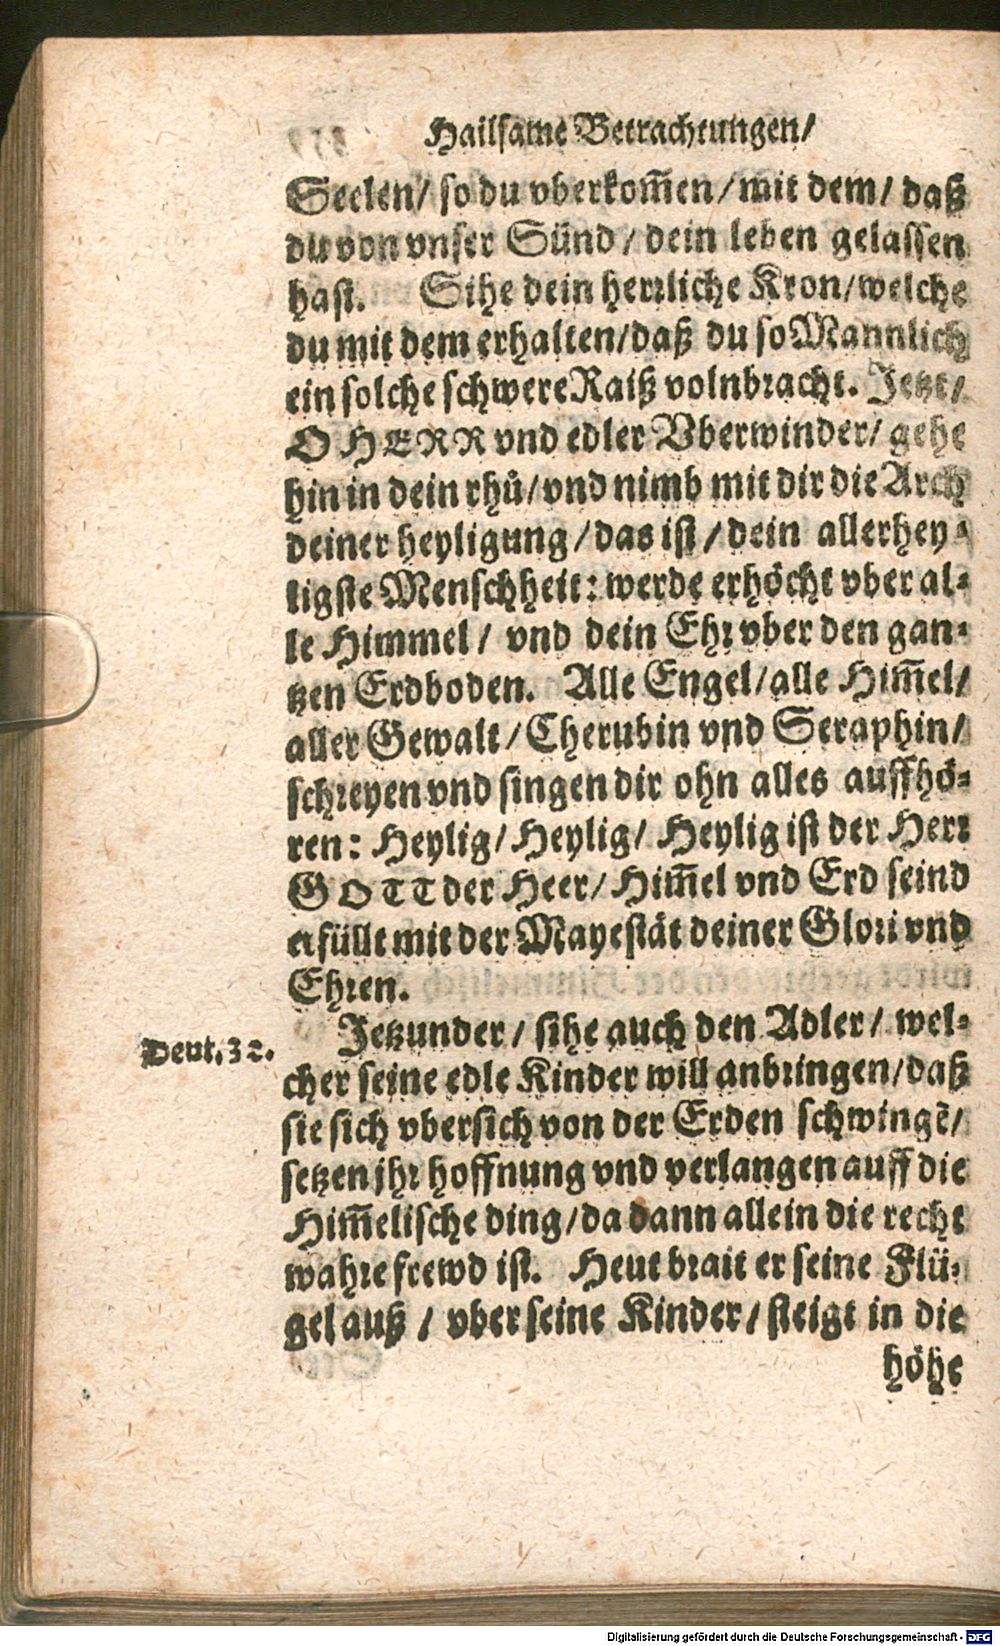 Hailsame Betrachtungen/
Seelen/ so du vberkom̃en/ mit dem/ daß
du von vnser Sünd/ dein leben gelassen
hast. Sihe dein herꝛliche Kron/ welche
du mit dem erhalten/ daß du so Mannlich
ein solche schwere Raiß volnbꝛacht. Jetzt/
O HERR vnd edler Vberwinder/ gehe
hin in dein rhů/ vnd nimb mit dir die Arch
deiner heyligung/ das ist/ dein allerhey⸗
ligste Menschheit: werde erhöcht vber al⸗
le Himmel/ vnd dein Ehꝛ vber den gan⸗
tzen Erdboden. Alle Engel/ alle Him̃el/
aller Gewalt/ Cherubin vnd Seraphin/
schꝛeyen vnd singen dir ohn alles auffhö⸗
ren: Heylig/ Heylig/ Heylig ist der Herꝛ
GOTT der Heer/ Him̃el vnd Erd seind
erfüllt mit der Mayestät deiner Gloꝛi vnd
Ehꝛen.
Jetzunder/ sihe auch den Adler/ wel⸗
Deut. 32.
cher seine edle Kinder will anbꝛingen/ daß
sie sich vbersich von der Erden schwingẽ/
setzen jhꝛ hoffnung vnd verlangen auff die
Him̃elische ding/ da dann allein die recht
wahꝛe frewd ist. Heut bꝛait er seine Flü⸗
gel auß/ vber seine Kinder/ steigt in die
höhe
Digitalisierung gefördert durch die Deutsche Forschungsgemeinschaft - DFG